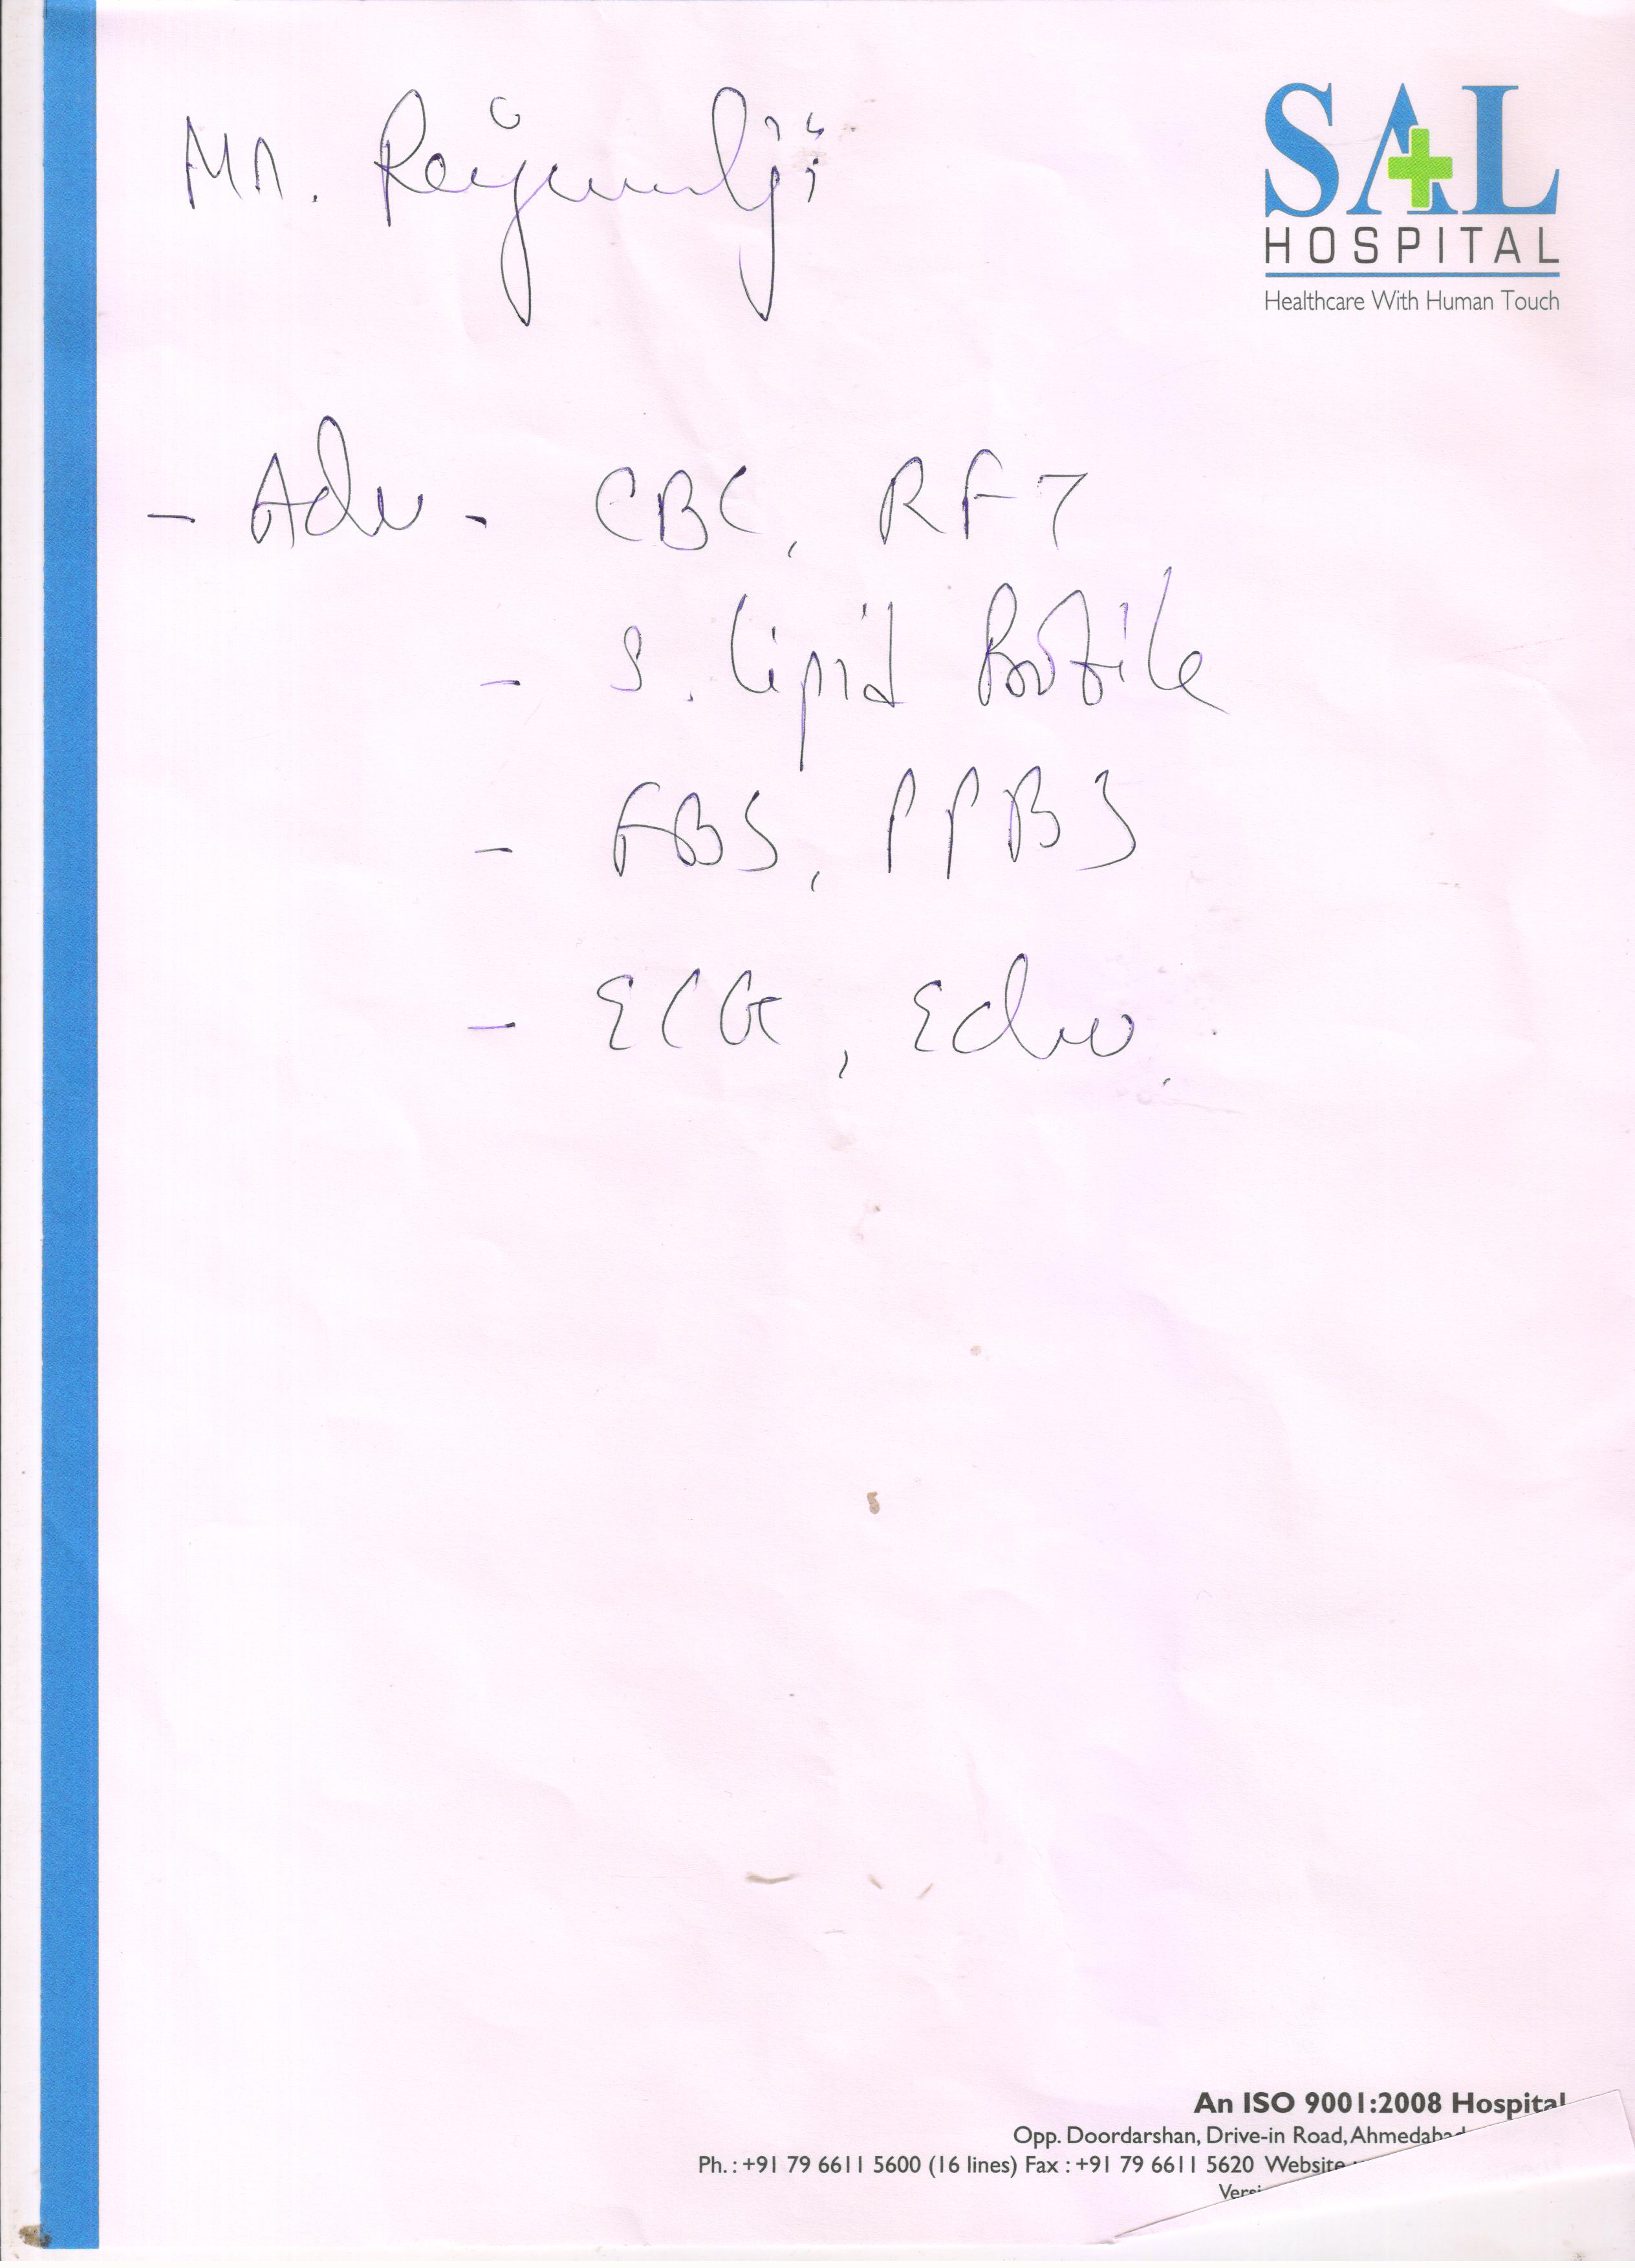 Mr.
SAL
HOSPITAL
Healthcare With Human Touch
- Adv - CBC, RFT
- S. Lipid Profile
- FBS, PPBS
- ECG, Echo.
An ISO 9001:2008 Hospital
Opp. Doordarshan, Drive-in Road, Ahmedabad
Ph. : +91 79 6611 5600 (16 lines) Fax : +91 79 6611 5620 Website